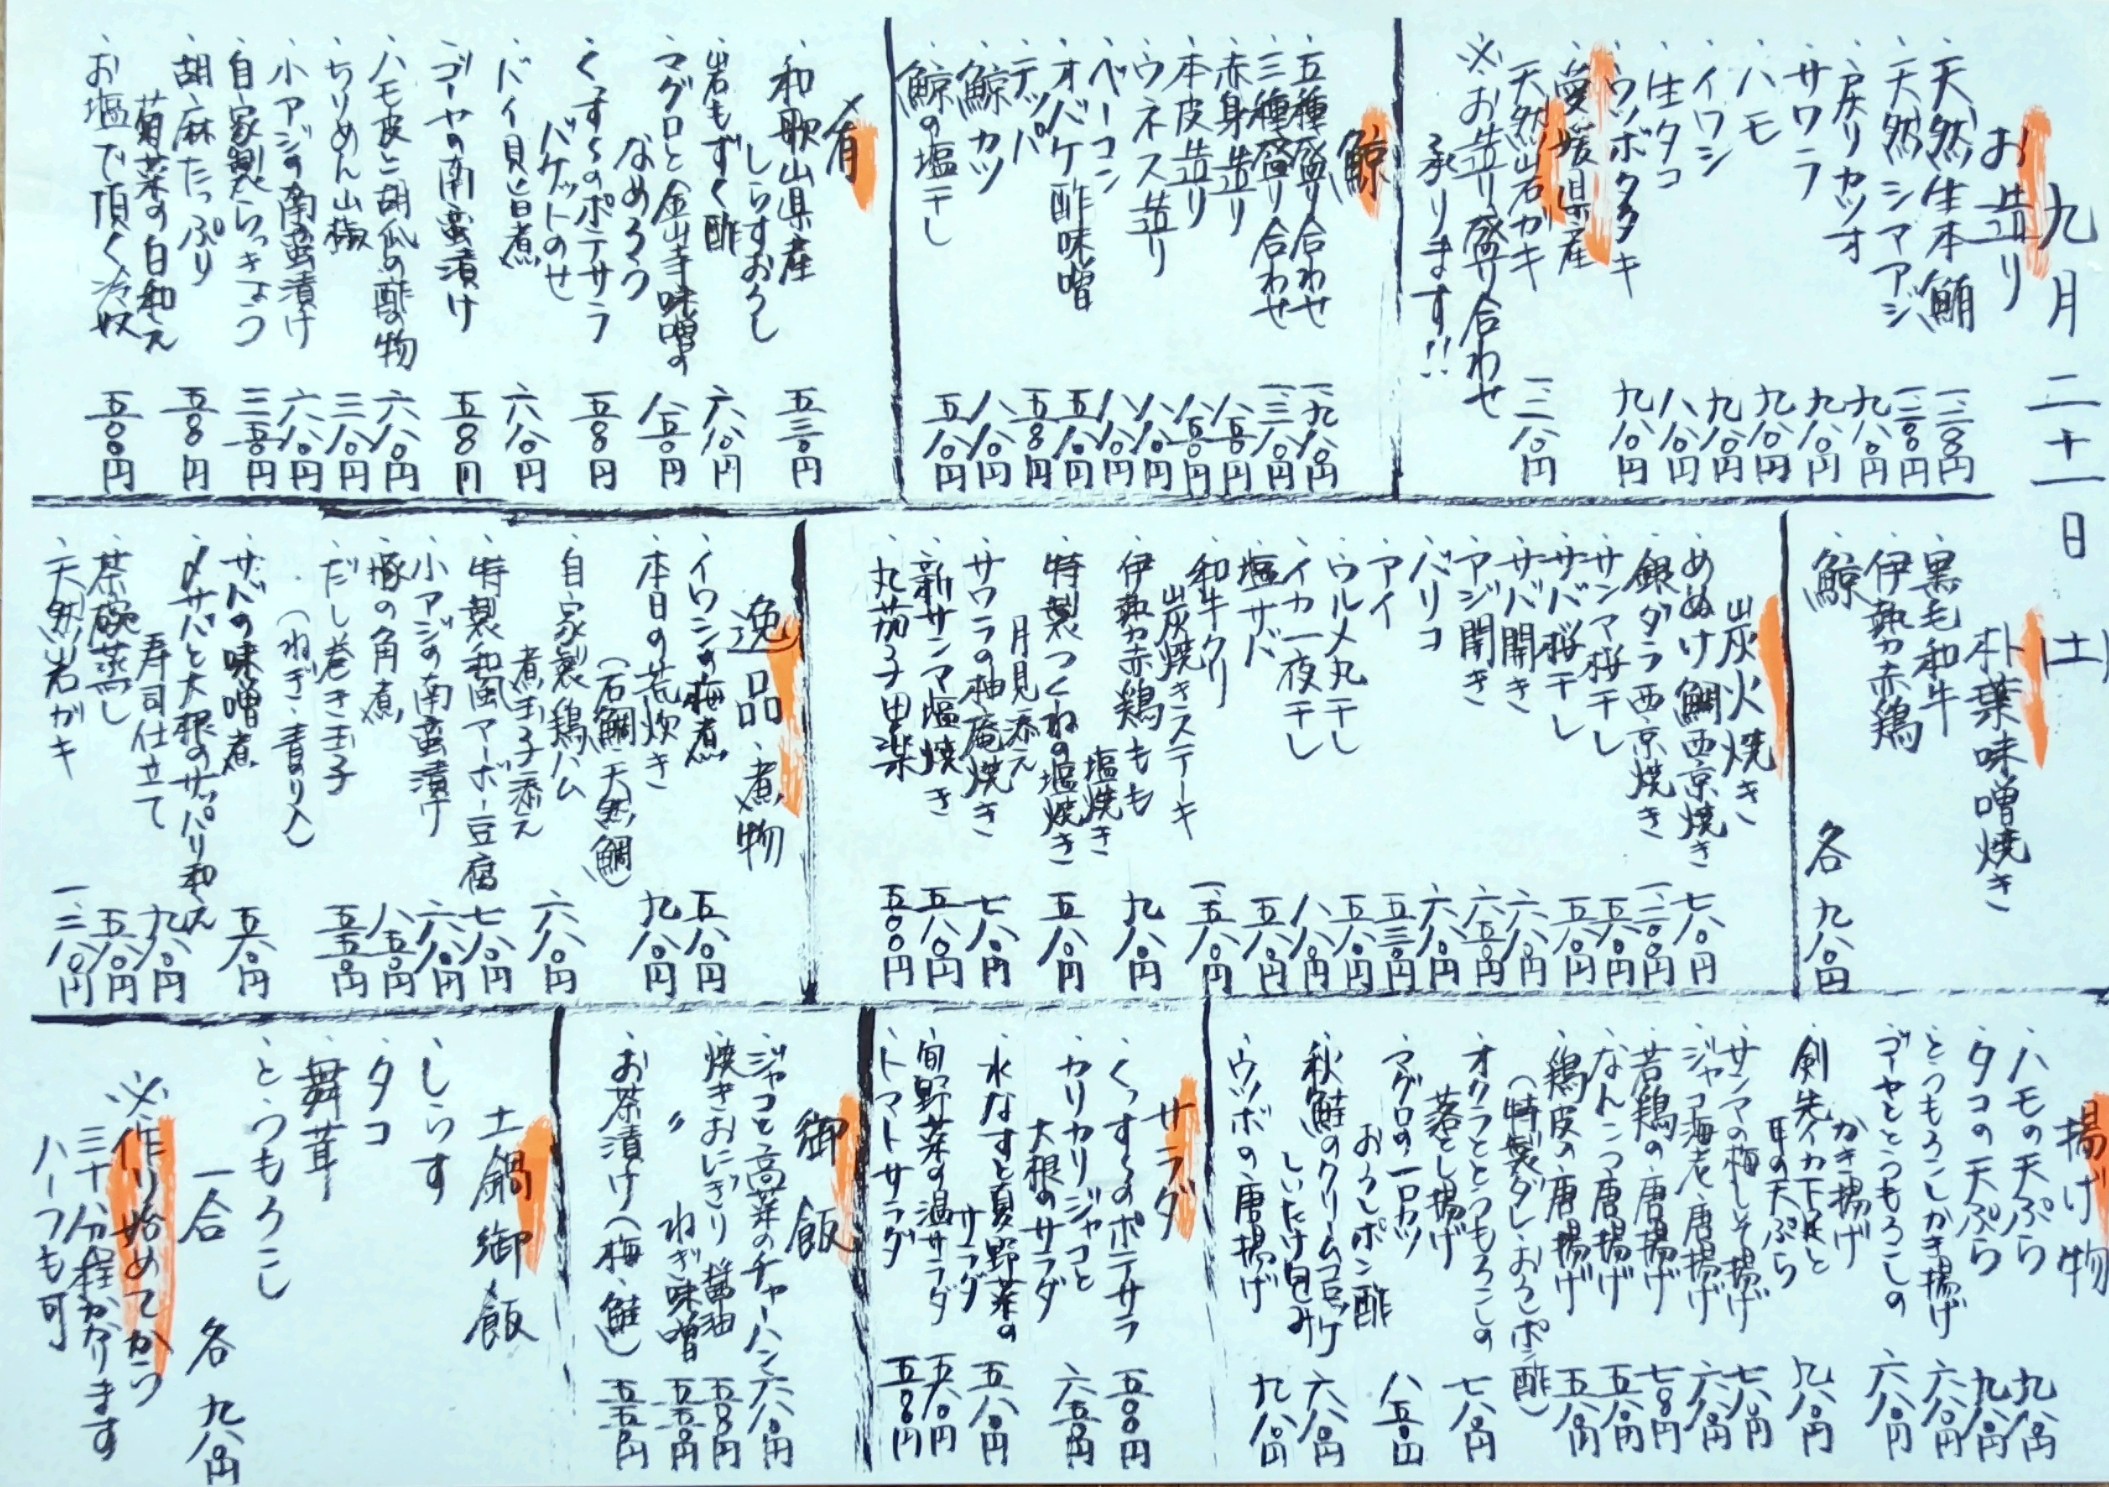 九月二十一日(土)
お造り
・天然生本鮪
・天然シマアジ
・戻りカツオ 九八〇円
・サワラ 九八〇円
・ハモ 九八〇円
・イワシ 九八〇円
・生タコ 八八〇円
・ウツボタタキ 九八〇円
・愛媛県産
天然岩ガキ 一、三八〇円
※お造り盛り合わせ
承ります!!
鯨
・五種盛り合わせ 一、九八〇円
・三種盛り合わせ 一、三八〇円
・赤身造り 八五〇円
・本皮造り 八五〇円
・ウネス造り 八八〇円
・ベーコン 八八〇円
・オバケ酢味噌 五八〇円
・テッパ 五五〇円
・鯨カツ 八八〇円
・鯨の塩干し 五八〇円
〆肴
・和歌山県産
しらすおろし 五三〇円
・岩もずく酢 六八〇円
・マグロと金山寺味噌の
なめろう 八五〇円
・くっすんのポテサラ
バケットのせ 五五〇円
・バイ貝旨煮 六八〇円
・ゴーヤの南蛮漬け
・ハモ皮と胡瓜の酢の物 六八〇円
・ちりめん山椒 三八〇円
・小アジの南蛮漬け 六八〇円
・自家製らっきょう 三五〇円
・胡麻たっぷり
菊菜の白和え
・お塩で頂く冷奴 五〇〇円
朴葉味噌焼き
・黒毛和牛
・伊勢赤鶏
・鯨
各九八〇円
炭火焼き
・めぬけ鯛西京焼き 七八〇円
・銀ダラ西京焼き
・サンマ桜干し 五八〇円
・サバ桜干し 五八〇円
・サバ開き 六八〇円
・アジ開き 六五〇円
・バリコ 六八〇円
・アイ 五三〇円
・ウルメ丸干し 五八〇円
・イカ一夜干し 八八〇円
・塩サバ 五八〇円
・和牛クリ
炭焼きステーキ 一、五八〇円
・伊勢赤鶏もも
塩焼き 九八〇円
・特製つくねの塩焼き
月見添え 五八〇円
・サワラの柚庵焼き 七八〇円
・新サンマ塩焼き 五八〇円
・丸茄子田楽 五〇〇円
逸品・煮物
・イワシの梅煮 五八〇円
・本日の荒炊き
(石鯛・天然鯛) 九八〇円
・自家製鶏ハム
煮玉子添え 六八〇円
・特製和風マーボー豆腐 七八〇円
・小アジの南蛮漬け 六八〇円
・豚の角煮 八五〇円
・だし巻き玉子
(ねぎ・青のり入) 五五〇円
・サバの味噌煮 五八〇円
・〆サバと大根のサッパリ和え
寿司仕立て 九八〇円
・茶碗蒸し 五八〇円
・天然岩ガキ 一、三八〇円
揚げ物
・ハモの天ぷら 九八〇円
・タコの天ぷら 九八〇円
・とうもろこしかき揚げ 六八〇円
・ゴーヤととうもろこしの
かき揚げ 六八〇円
・剣先イカ下足と
耳の天ぷら 九八〇円
・サンマの梅しそ揚げ 七八〇円
・ジャコ海老唐揚げ 六八〇円
・若鶏の唐揚げ
・なんこつ唐揚げ 五八〇円
・鶏皮の唐揚げ 五八〇円
(特製ダレ・おろしポン酢)
・オクラととうもろこしの
落とし揚げ 七八〇円
・マグロの一口カツ
おろしポン酢 八五〇円
・秋鮭のクリームコロッケ
しいたけ包み 六八〇円
・ウツボの唐揚げ 九八〇円
サラダ
・くっすんのポテサラ 五〇〇円
・カリカリジャコと
大根のサラダ 六五〇円
・水なすと夏野菜の
サラダ 五八〇円
・旬野菜の温サラダ 五八〇円
・トマトサラダ
御飯
・ジャコと高菜のチャーハン 六八〇円
・焼きおにぎり 醤油
〃 ねぎ味噌 五五〇円
・お茶漬け(梅・鮭) 五五〇円
土鍋御飯
・しらす
・タコ
・舞茸
・とうもろこし
一合 各九八〇円
※作り始めてから
三十分程かかります
ハーフも可